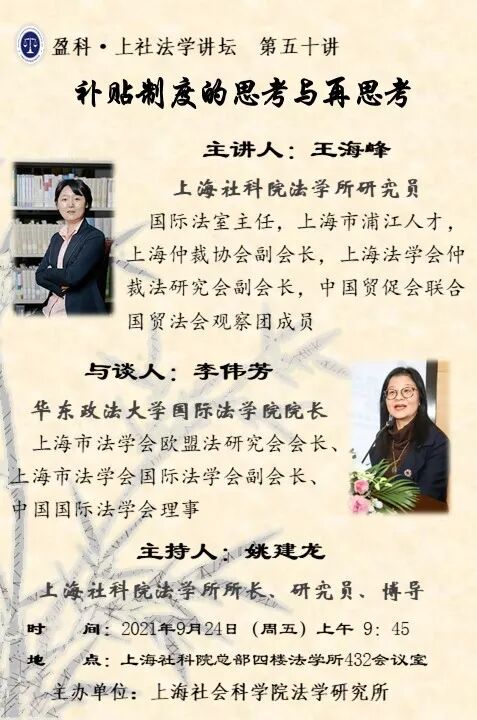 盈科·上社法学讲坛　第五十讲
补贴制度的思考与再思考
主讲人：王海峰
上海社科院法学所研究员
国际法室主任，上海市浦江人才，
上海仲裁协会副会长，上海法学会仲
裁法研究会副会长，中国贸促会联合
国贸法会观察团成员
与谈人：李伟芳
华东政法大学国际法学院院长
上海市法学会欧盟法研究会会长、
上海市法学会国际法学会副会长、
中国国际法学会理事
主持人：姚建龙
上海社科院法学所所长、研究员、博导
时　　间：2021年9月24日（周五）上午 9：45
地　　点：上海社科院总部四楼法学所432会议室
主办单位：上海社会科学院法学研究所